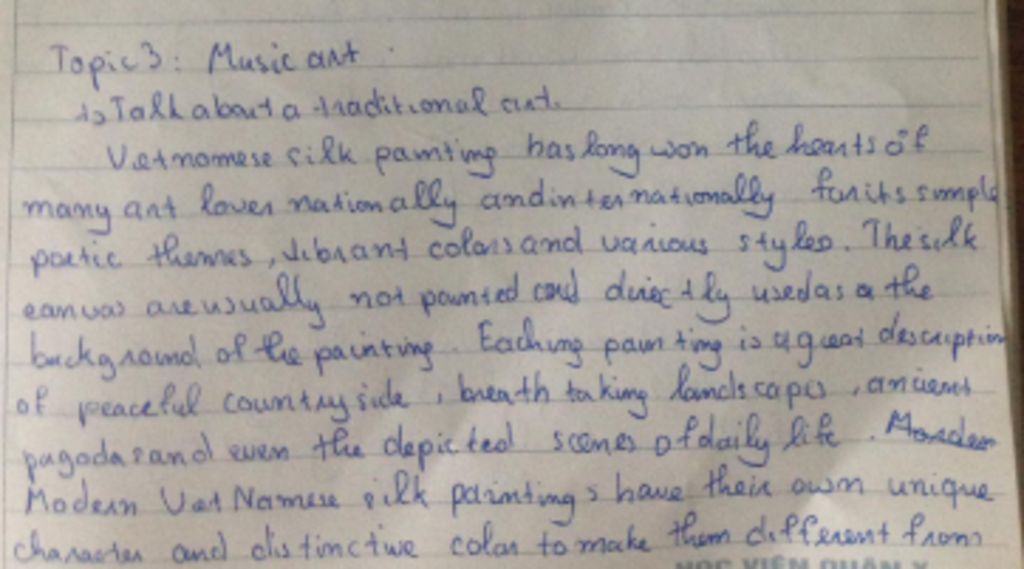 Topic 3: Music art
↳ Talk about a traditional art.
Vietnamese silk painting has long won the hearts of
many art lover nationally and internationally for its simple
poetic themes, vibrant colors and various styles. The silk
canvas are usually not painted and directly used as a the
background of the painting. Eaching painting is a great description
of peaceful countryside, breath taking landscapes, ancient
pagodas and even the depicted scenes of daily life.
Modern VietNamese silk paintings have their own unique
character and distinctive color to make them different from
HỌC VIỆN QUÂN Y